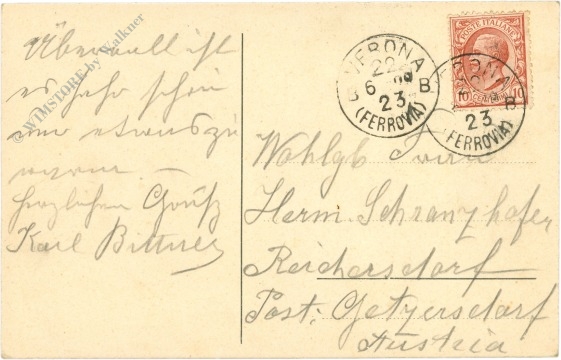 Überall ist
es sehr schön
nur etwas zu
warm. —
herzlichen Gruß
Karl Bittner
© WIMSTORE by Walkner
VERONA
22
6 09
B
23
(FERROVIA)
POSTE ITALIANE
10 CENTESIMI 10
VERONA
B
23
(FERROVIA)
Wohlgb
Herm. Schranzhofer
Reichersdorf
Post: Getzersdorf
Austria